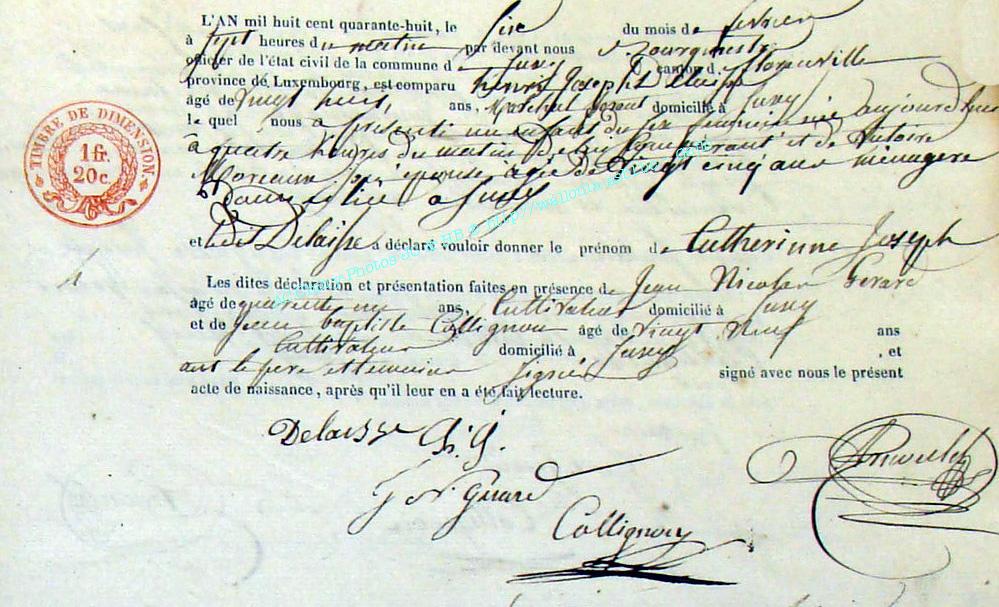 L'AN mil huit cent quarante-huit, le six du mois de fevrier
à sept heures du matin par devant nous Bourgmestre
officier de l'état civil de la commune de Juzy canton de Florenville
province de Luxembourg, est comparu henri Joseph Delaisse
âgé de vingt huit ans, Marechal domicilié à Juzy
le quel nous a presenté un enfant du sex feminin né aujourdhui
à quatre heures du matin de lui declarant et de Victoire
Moreaux son épouse agée de vingt cinq ans ménagere
domiciliée a Juzy
et ledit Delaisse a déclaré vouloir donner le prénom de Catherinne Joseph
Les dites déclaration et présentation faites en présence de Jean Nicolas Gerard
âgé de quarante un ans, Cultivateur domicilié à Juzy
et de Jean baptiste Collignon âgé de vingt neuf ans
Cultivateur domicilié à Juzy , et
ont le pere et temoins signés signé avec nous le présent
acte de naissance, après qu'il leur en a été fait lecture.
TIMBRE DE DIMENSION.
1 fr.
20 c.
6
Delaisse h. j.
J N Gérard
Collignon